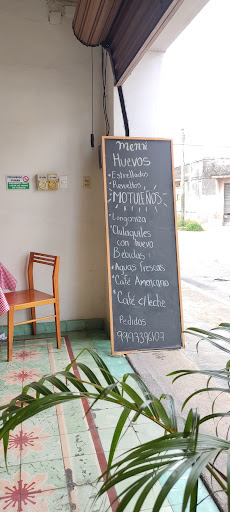 Menú
Huevos
• Estrellados
• Revueltos
• MOTULEÑOS
• Longaniza
• Chilaquiles
con huevo
Bebidas:
• Aguas frescas
• Café Americano
• Café c/leche
Pedidos